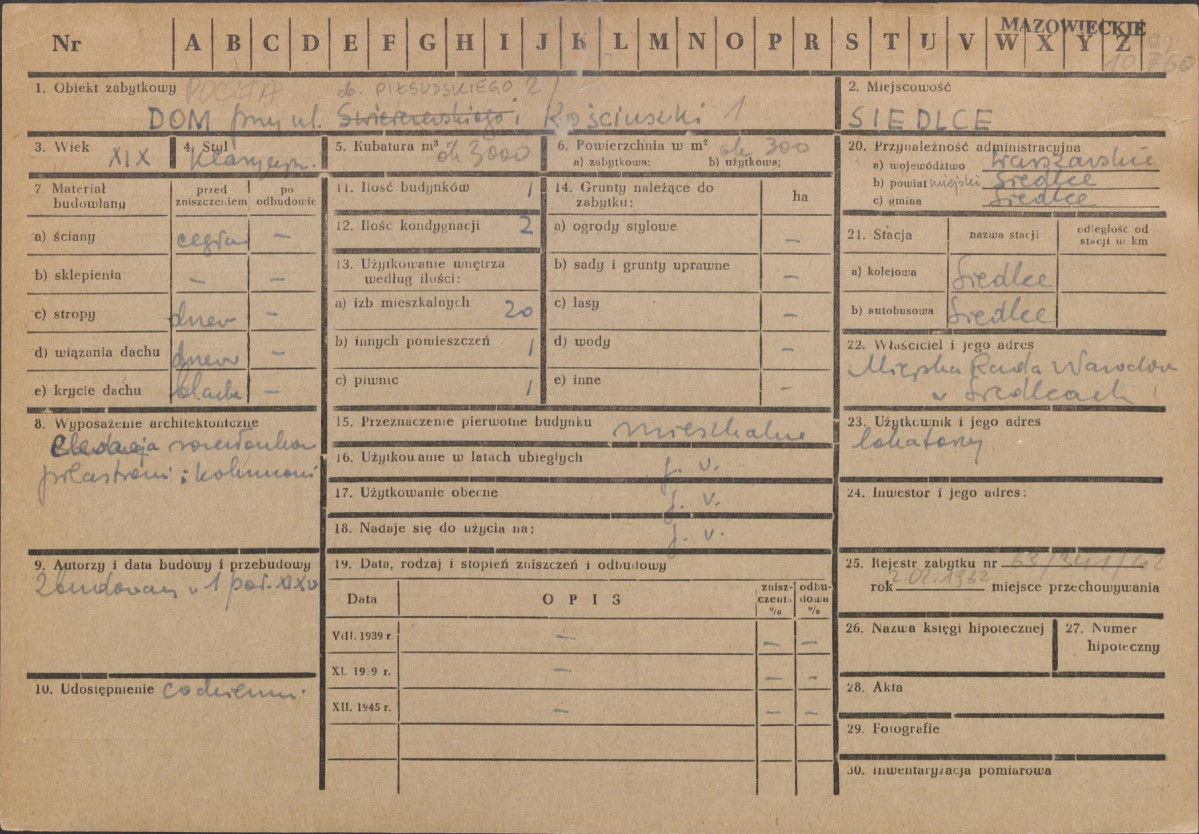 MAZOWIECKIE
Nr A B C D E F G H I J K L M N O P R S T U V W X Y Z
1. Obiekt zabytkowy POCZTA ob. PIŁSUDSKIEGO 2/
DOM przy ul. Świerczewskiego i Kościuszki 1
2. Miejscowość
SIEDLCE
3. Wiek XIX
4. Styl klasycyzm.
5. Kubatura m³ ok 3000
6. Powierzchnia w m² ok 300
a) zabytkowa: b) użytkowa;
7. Materiał budowlany
przed zniszczeniem
po odbudowie
a) ściany cegła –
b) sklepienia – –
c) stropy drew –
d) wiązania dachu drew –
e) krycie dachu blacha –
8. Wyposażenie architektoniczne
Elewacja rozczłonkow
pilastrami i kolumnami
9. Autorzy i data budowy i przebudowy
Zbudowany w 1 poł. XIX w
10. Udostępnienie codzienni.
11. Ilość budynków 1
12. Ilość kondygnacji 2
13. Użytkowanie wnętrza według ilości:
a) izb mieszkalnych 20
b) innych pomieszczeń 1
c) piwnic 1
14. Grunty należące do zabytku: ha
a) ogrody stylowe –
b) sady i grunty uprawne –
c) lasy –
d) wody –
e) inne –
15. Przeznaczenie pierwotne budynku mieszkalne
16. Użytkowanie w latach ubiegłych j. v.
17. Użytkowanie obecne j. v.
18. Nadaje się do użycia na: j. v.
19. Data, rodzaj i stopień zniszczeń i odbudowy
Data OPIS zniszczenia % odbudowa %
VIII. 1939 r. – – –
XI. 1939 r. – – –
XII. 1945 r. – – –
20. Przynależność administracyjna
a) województwo warszawskie
b) powiat miejski Siedlce
c) gmina Siedlce
21. Stacja nazwa stacji odległość od stacji w km
a) kolejowa Siedlce
b) autobusowa Siedlce
22. Właściciel i jego adres
Miejska Rada Narodow
w Siedlcach
23. Użytkownik i jego adres
lokatorzy
24. Inwestor i jego adres:
25. Rejestr zabytku nr 63/341/62
rok 2.02.1962 miejsce przechowywania
26. Nazwa księgi hipotecznej
27. Numer hipoteczny
28. Akta
29. Fotografie
30. Inwentaryzacja pomiarowa